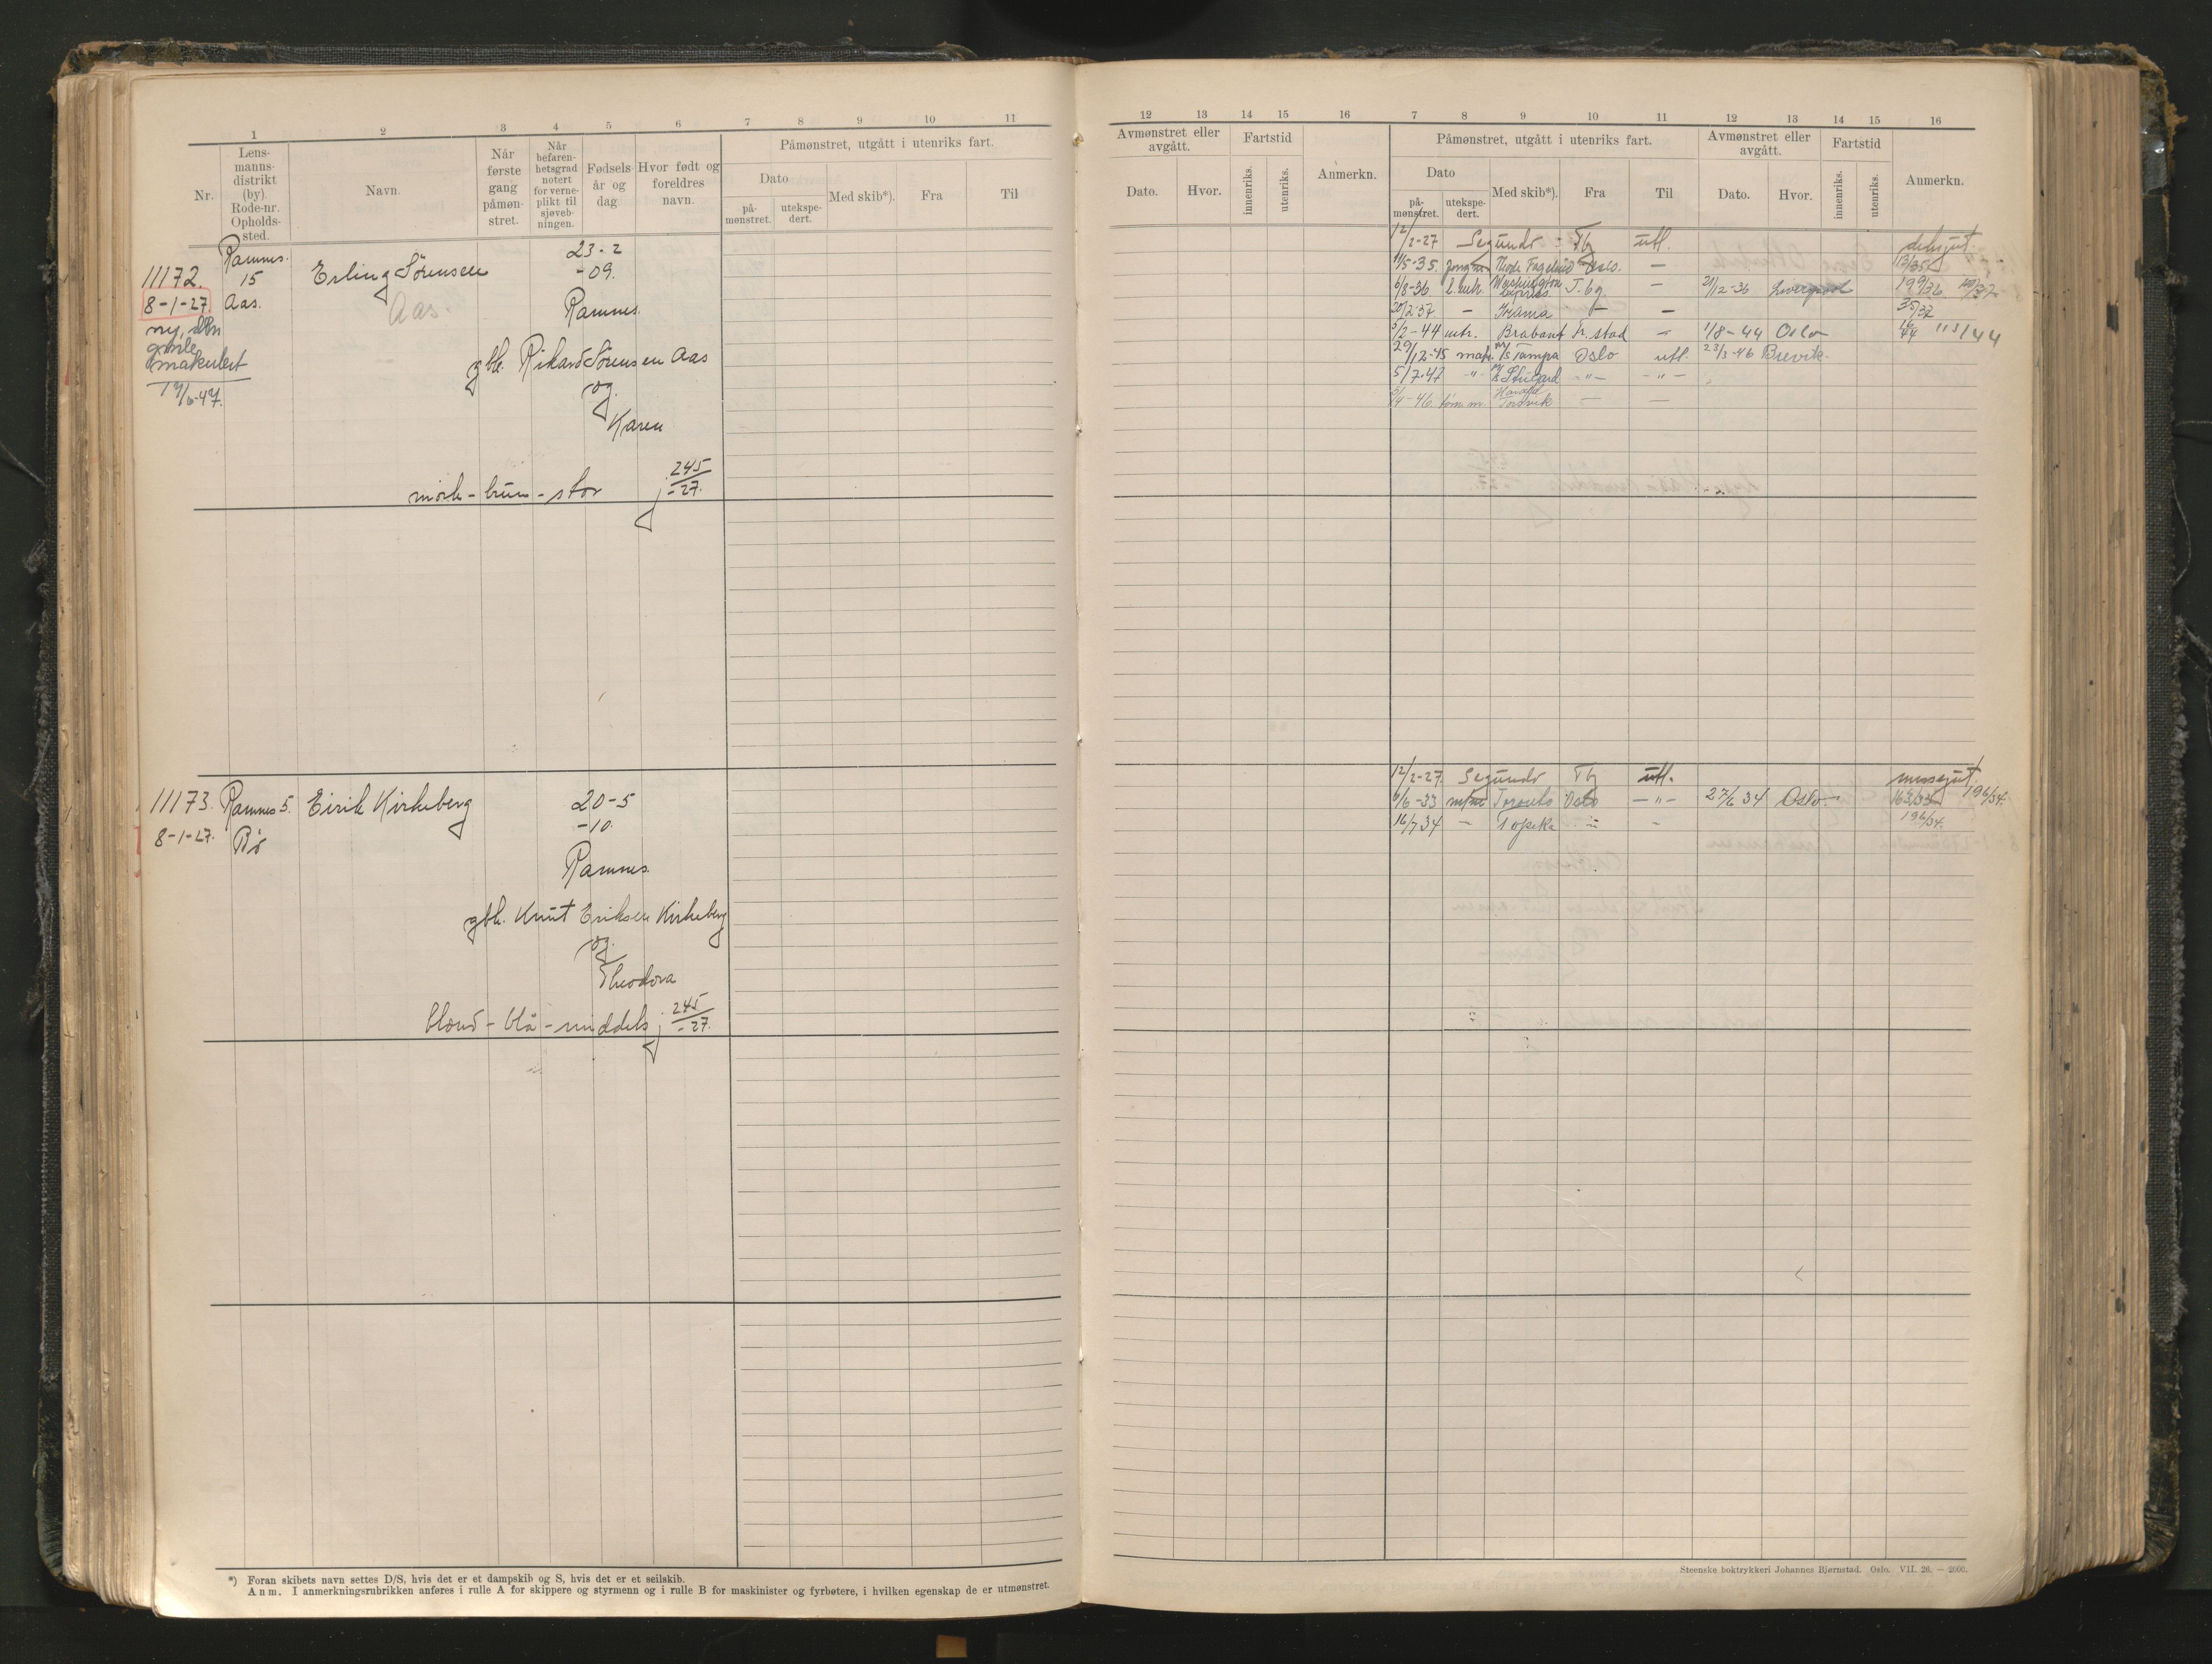 1 2 3 4 5 6 7 8 9 10 11
Nr.
Lens-
manns-
distrikt
(by).
Rode-nr.
Opholds-
sted.
Navn.
Når
første
gang
påmøn-
stret.
Når
befaren-
hetsgrad
notert
for verne-
plikt til
sjøveb-
ningen.
Fødsels-
år og
dag
Hvor født og
foreldres
navn.
Påmønstret, utgått i utenriks fart.
Dato
på-
mønstret.
utekspe-
dert.
Med skib*).
Fra
Til
11172. Ramnes. 15 Erling Sörensen 23-2
-09.
8-1-27 Aas. Aas. Ramnes.
ny, den
gamle
makulert
19/6-47.
gbr. Rikard Sörensen Aas
og
Karen
mörk - brun - stor j 245
-27.
11173. Ramnes 5. Eirik Kirkeberg 20-5
-10.
8-1-27. Bö
Ramnes.
gbr. Knut Eriksen Kirkeberg
og
Theodora
blond - blå - middels j 245
-27.
*) Foran skibets navn settes D/S, hvis det er et dampskib og S, hvis det er et seilskib.
Anm. I anmerkningsrubrikken anføres i rulle A for skippere og styrmenn og i rulle B for maskinister og fyrbøtere, i hvilken egenskap de er utmønstret.
12 13 14 15 16 7 8 9 10 11 12 13 14 15 16
Avmønstret eller
avgått.
Dato. Hvor.
Fartstid
innenriks. utenriks.
Anmerkn.
Påmønstret, utgått i utenriks fart.
Dato
på-
mønstret.
utekspe-
dert.
Med skib*).
Fra
Til
Avmønstret eller
avgått.
Dato. Hvor.
Fartstid
innenriks. utenriks.
Anmerkn.
12/2-27 Segundo Tbg utl. deksgut.
11/5-35. jongm Oslo. — 13/35
6/8-36 Washington Express T.bg — 21/2-36 Liverpool 199/36
20/2-37 — Trama — — 35/37
5/2-44 matr. Brabant Fr.stad 1/8-44 Oslo 16/44
29/12-45 matr. M/S Tampa Oslo utl. 23/3-46 Brevik.
5/7-47 -"- -"- -"-
4-46. töm.m. Harald Torsvik — —
12/2-27. Segundo Tbg utl. messegut.
6/6-33 m/m Toronto Oslo -"- 27/6 34 Oslo. 163/33 196/34.
16/7 34 — Topeka -"- - 196/34.
Steenske boktrykkeri Johannes Bjørnstad. Oslo. VII. 26. — 2000.